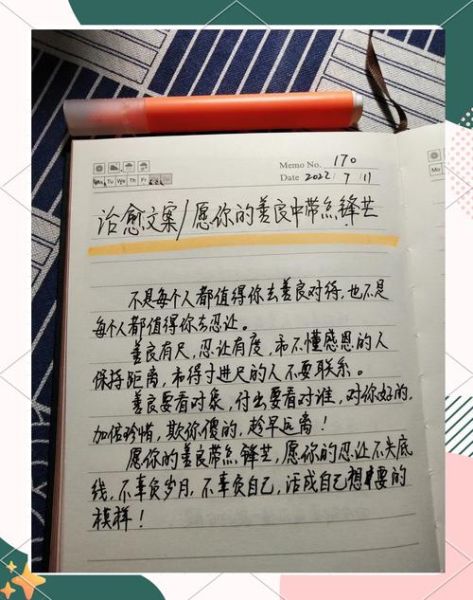 Memo No. 170
Mo Tu We Th Fr Sa Su
Date 2022 7 11
治愈文案/愿你的善良中带点锋芒
不是每个人都值得你去善良对待,也不是
每个人都值得你去忍让。
善良有尺,忍让有度,和不懂感恩的人
保持距离,和得寸进尺的人不要联系。
善良要看对象,付出要看对谁,对你好的,
加倍珍惜,欺你傻的,趁早远离!
愿你的善良带点锋芒,愿你的忍让不失底
线,不辜负岁月,不辜负自己,活成自己想要的
模样!
Mo